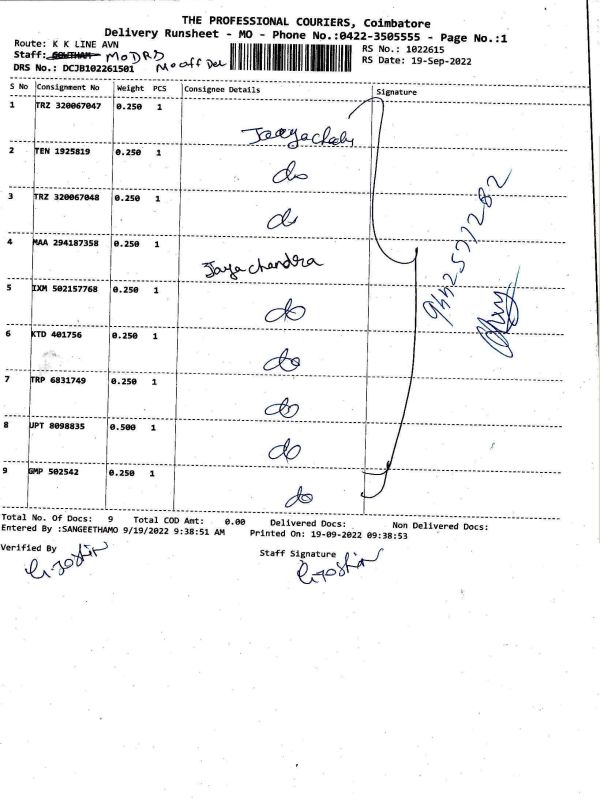 THE PROFESSIONAL COURIERS, Coimbatore
Delivery Runsheet - MO - Phone No.:0422-3505555 - Page No.:1
Route: K K LINE AVN
RS No.: 1022615
Staff: GOWTHAM MODRS
RS Date: 19-Sep-2022
DRS No.: DCJB102261501 Mo off Del
S No Consignment No Weight PCS Consignee Details Signature
1 TRZ 320067047 0.250 1
2 TEN 1925819 0.250 1 do
3 TRZ 320067048 0.250 1 do
4 MAA 294187358 0.250 1 Jaya chandra
5 IXM 502157768 0.250 1 do
6 KTD 401756 0.250 1 do
7 TRP 6831749 0.250 1 do
8 UPT 8098835 0.500 1 do
9 GMP 502542 0.250 1 do
Total No. Of Docs: 9 Total COD Amt: 0.00 Delivered Docs: Non Delivered Docs:
Entered By :SANGEETHAMO 9/19/2022 9:38:51 AM Printed On: 19-09-2022 09:38:53
Verified By Staff Signature